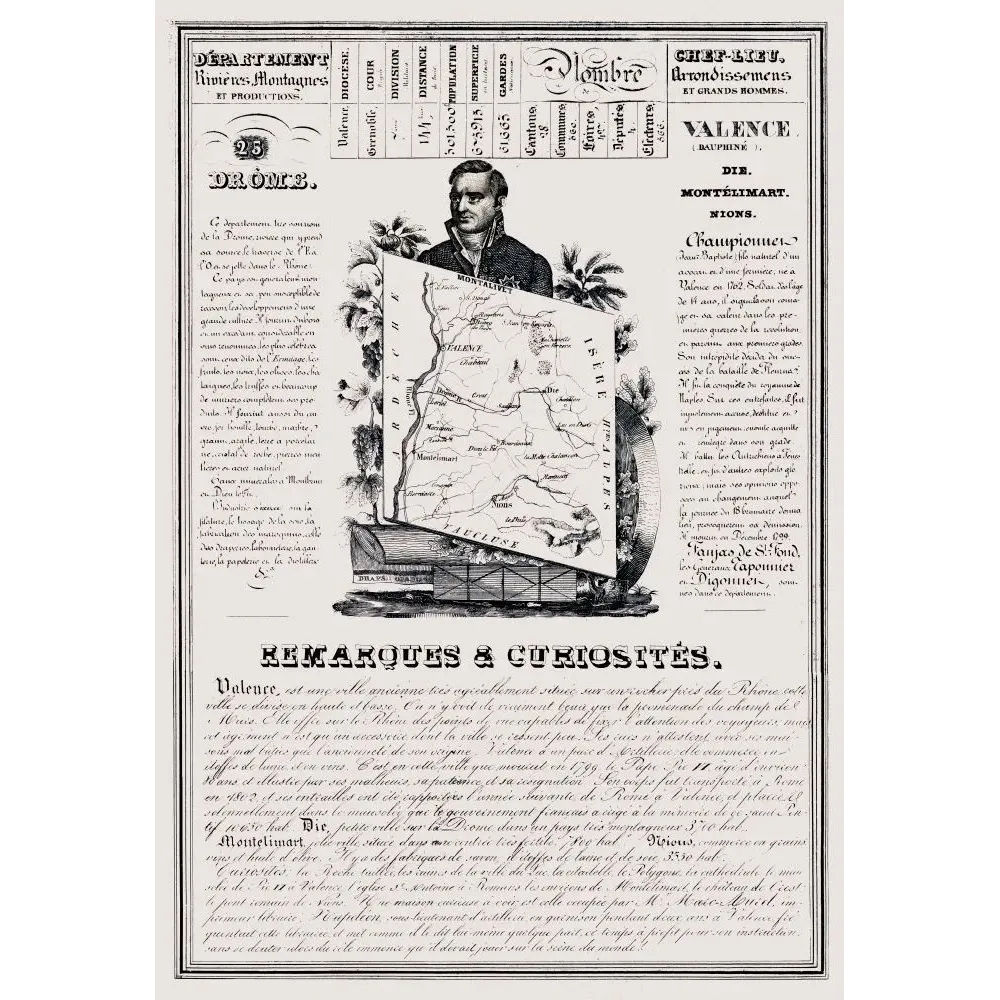 DÉPARTEMENT,
Rivières, Montagnes
ET PRODUCTIONS.
DIOCÈSE.
Valence,
COUR
Grenoble,
DIVISION
DISTANCE
POPULATION
SUPERFICIE
GARDES
Nombre
de
Cantons, 28
Communes, 360.
Foires,
Députés, 4.
Electeurs,
CHEF-LIEU,
Arrondissemens
ET GRANDS HOMMES.
25
DRÔME.
Ce département tire son nom
de la Drome, rivière qui y prend
sa source, le traverse de l'E. à
l'O. et se jette dans le Rhône.
Ce pays est généralement mon
tagneux et peu susceptible de
recevoir les développemens d'une
grande culture. Il fournit du bois
et un excédant considérable en
vins renommés, les plus célèbres
sont ceux dits de l'Ermitage. Les
fruits, les noix, les olives, les cha
taignes, les truffes et beaucoup
de muriers complètent ses pro
duits. Il fournit aussi du cui
vre, fer, houille, tourbe, marbre,
granit, argile, terre à porcelai
ne, cristal de roche, pierres meu
lières et acier naturel.
Eaux minérales à Montbrun
et Dieulefit.
L'industrie s'exerce sur la
filature, le tissage de la soie, la
fabrication des maroquins, celle
des draperies, la bonneterie, la gan
terie, la papeterie et la distillerie
&ca
VALENCE,
(DAUPHINÉ),
DIE.
MONTÉLIMART.
NIONS.
Championnet
Jean Baptiste fils naturel d'un
avocat et d'une fermière, né à
Valence en 1762. Soldat dès l'âge
de 14 ans, il signala son coura-
ge et sa valeur dans les pre-
mières guerres de la révolution
et parvint aux premiers grades
Son intrépidité décida du suc-
cès de la bataille de Fleurus
Il fit la conquête du royaume de
Naples. Sur ces entrefaites, il fut
injustement accusé, destitué et
mis en jugement, ensuite acquitté
et réintégré dans son grade.
Il battit les Autrichiens à Fenes
trelle, et fit d'autres exploits glo
rieux; mais ses opinions oppo-
sées au changement auquel
la journée du 18 brumaire donna
lieu, provoquèrent sa démission.
Il mourut en Décembre 1799.
Faujas de St. Fond,
les Généraux Caponnier
et Digonnet, sont
nés dans ce département.
MONTALIVET
ARDÈCHE
ISÈRE
Htes ALPES
VAUCLUSE
VALENCE
Chabeuil
Rhône R.
Drôme R.
Crest
Die
Montelimart
Nions
DRAPS
REMARQUES & CURIOSITÉS.
Valence, est une ville ancienne très agréablement située sur un rocher près du Rhône, cette
ville se divise en haute et basse. On n'y voit de vraiment beau que la promenade du champ de
Mars. Elle offre sur le Rhône des points de vue capables de fixer l'attention des voyageurs, mais
cet agrément n'est qu'un accessoire dont la ville se ressent peu. Ses rues n'attestent avec ses mai
sons mal baties que l'ancienneté de son origine. Valence à un parc d'Artillerie, elle commerce en
étoffes de laine et en vins. C'est en cette ville que mourut en 1799 le Pape Pie VI âgé d'environ
80 ans et illustré par ses malheurs, sa patience et sa résignation. Son corps fut transporté à Rome
en 1802, et ses entrailles ont été rapportées l'année suivante de Rome à Valence, et placées
solennellement dans le mausolée que le gouvernement français a érigé à la mémoire de ce saint Pon-
tif. 10 650 hab. Die, petite ville sur la Drome dans un pays très montagneux 3,700 hab.
Montelimart, jolie ville située dans une contrée très fertile. 7800 hab. Nions, commerce en grains
vins et huile d'olive. Il y a des fabriques de savon, d'étoffes de laine et de soie, 3350 hab.
Curiosités, la Roche taillée, les ruines de la ville du Luc, la citadelle, le Polygone, la cathédrale, le mau
solée de Pie VI à Valence, l'église St. Antoine à Romans, les environs de Montelimart, le château de Crest
le pont romain de Nions. Une maison curieuse à voir est celle occupée par Mr. Marc-Aurel, im-
primeur libraire. Napoléon, sous-lieutenant d'artillerie en garnison pendant deux ans à Valence, fré
quentait cette librairie, et mit comme il le dit lui-même quelque part, ce temps à profit pour son instruction,
sans se douter alors du rôle immense qu'il devait jouer sur la scène du monde!!